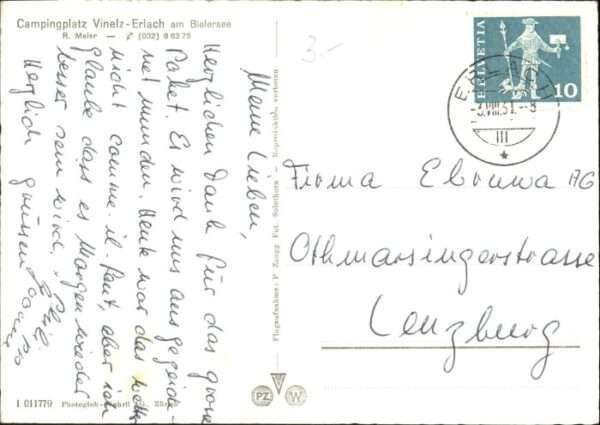 Campingplatz Vinelz-Erlach am Bielersee
R. Meier — (032) 8 63 75
3.-
HELVETIA
10
III
Meine Lieben,
Herzlichen Dank für das grosse
Paket. Es wird uns ausgezeich-
net munden. Heute war das Wetter
nicht comme-il-faut, aber ich
glaube dass es Morgen wieder
besser sein wird.
Herzlich grüssen
Firma Ebnuwa AG
Othmarsingerstrasse
Lenzburg
Flugaufnahme: P. Zaugg Fot. Solothurn - Reproduktion verboten
PZ
W
1 011779 Photoglob-Wehrli AG, Zürich